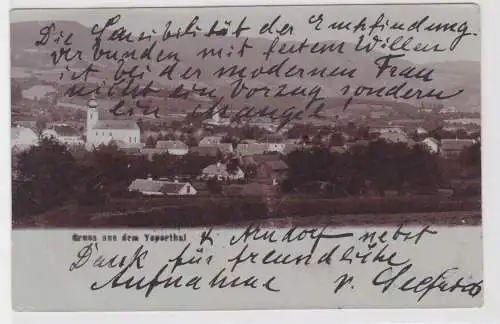 Die Sensibilität der Empfindung
verbunden mit festem Willen
ist bei der modernen Frau
nicht ein Vorzug sondern
ein manger!
Gruss aus dem Ysperthal
& Arndorf nebst
Dank für freundliche
Aufnahme v.